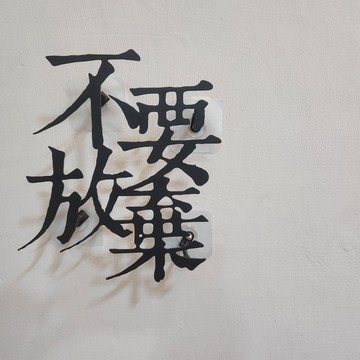 不要
放棄